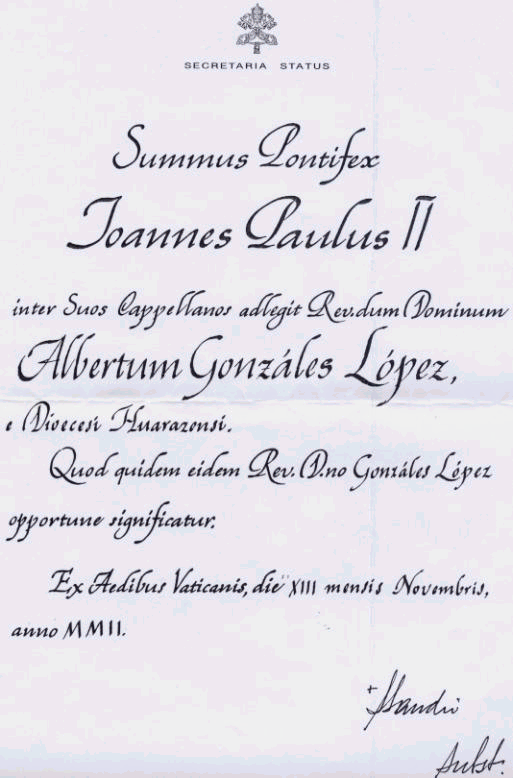 SECRETARIA STATUS
Summus Pontifex
Joannes Paulus II
inter Suos Cappellanos adlegit Rev.dum Dominum
Albertum Gonzáles López,
e Dioecesi Huarazensi.
Quod quidem eidem Rev. D.no Gonzáles López
opportune significatur.
Ex Aedibus Vaticanis, die XIII mensis Novembris,
anno MMII.
Subst.